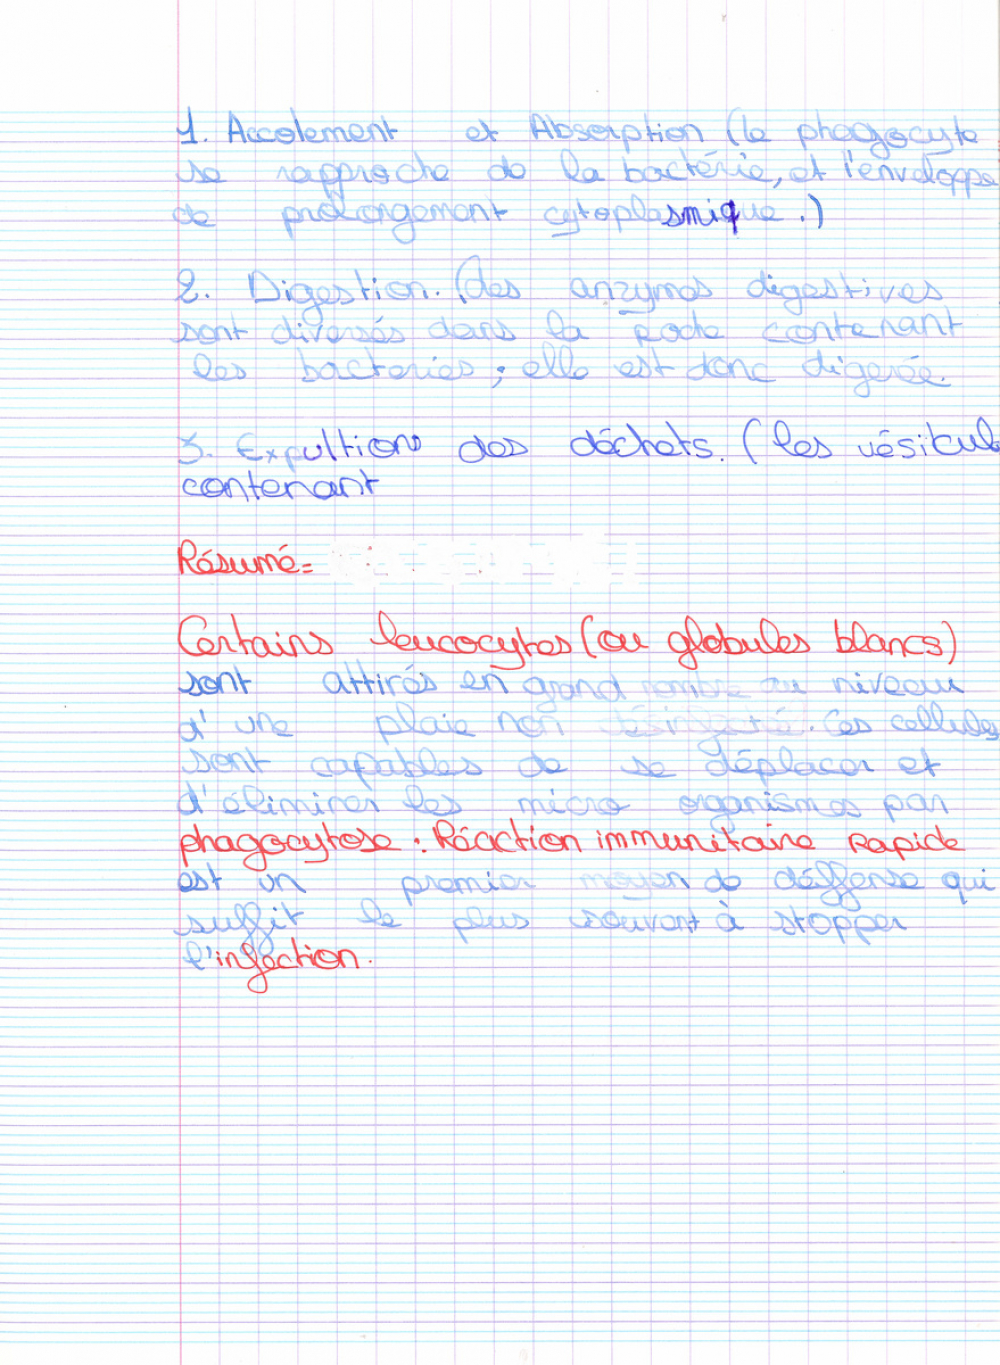 1. Accolement et Absorption (le phagocyte
se rapproche de la bactérie, et l'enveloppe
de prolongement cytoplasmique.)
2. Digestion. (des enzymes digestives
sont diversés dans la poche contenant
les bacteries, elle est donc digerée.
3. Expultion des déchets. (les vésicul
contenant
Résumé=
Certains leucocytes (ou globules blancs)
sont attirés en grand nombre au niveau
d'une plaie non désinfecté. Ces cellules
sont capables de se déplacer et
d'éliminer les micro organismes par
phagocytose : Réaction immunitaire rapide
est un premier moyen de déffense qui
suffit le plus souvent à stopper
l'infection.